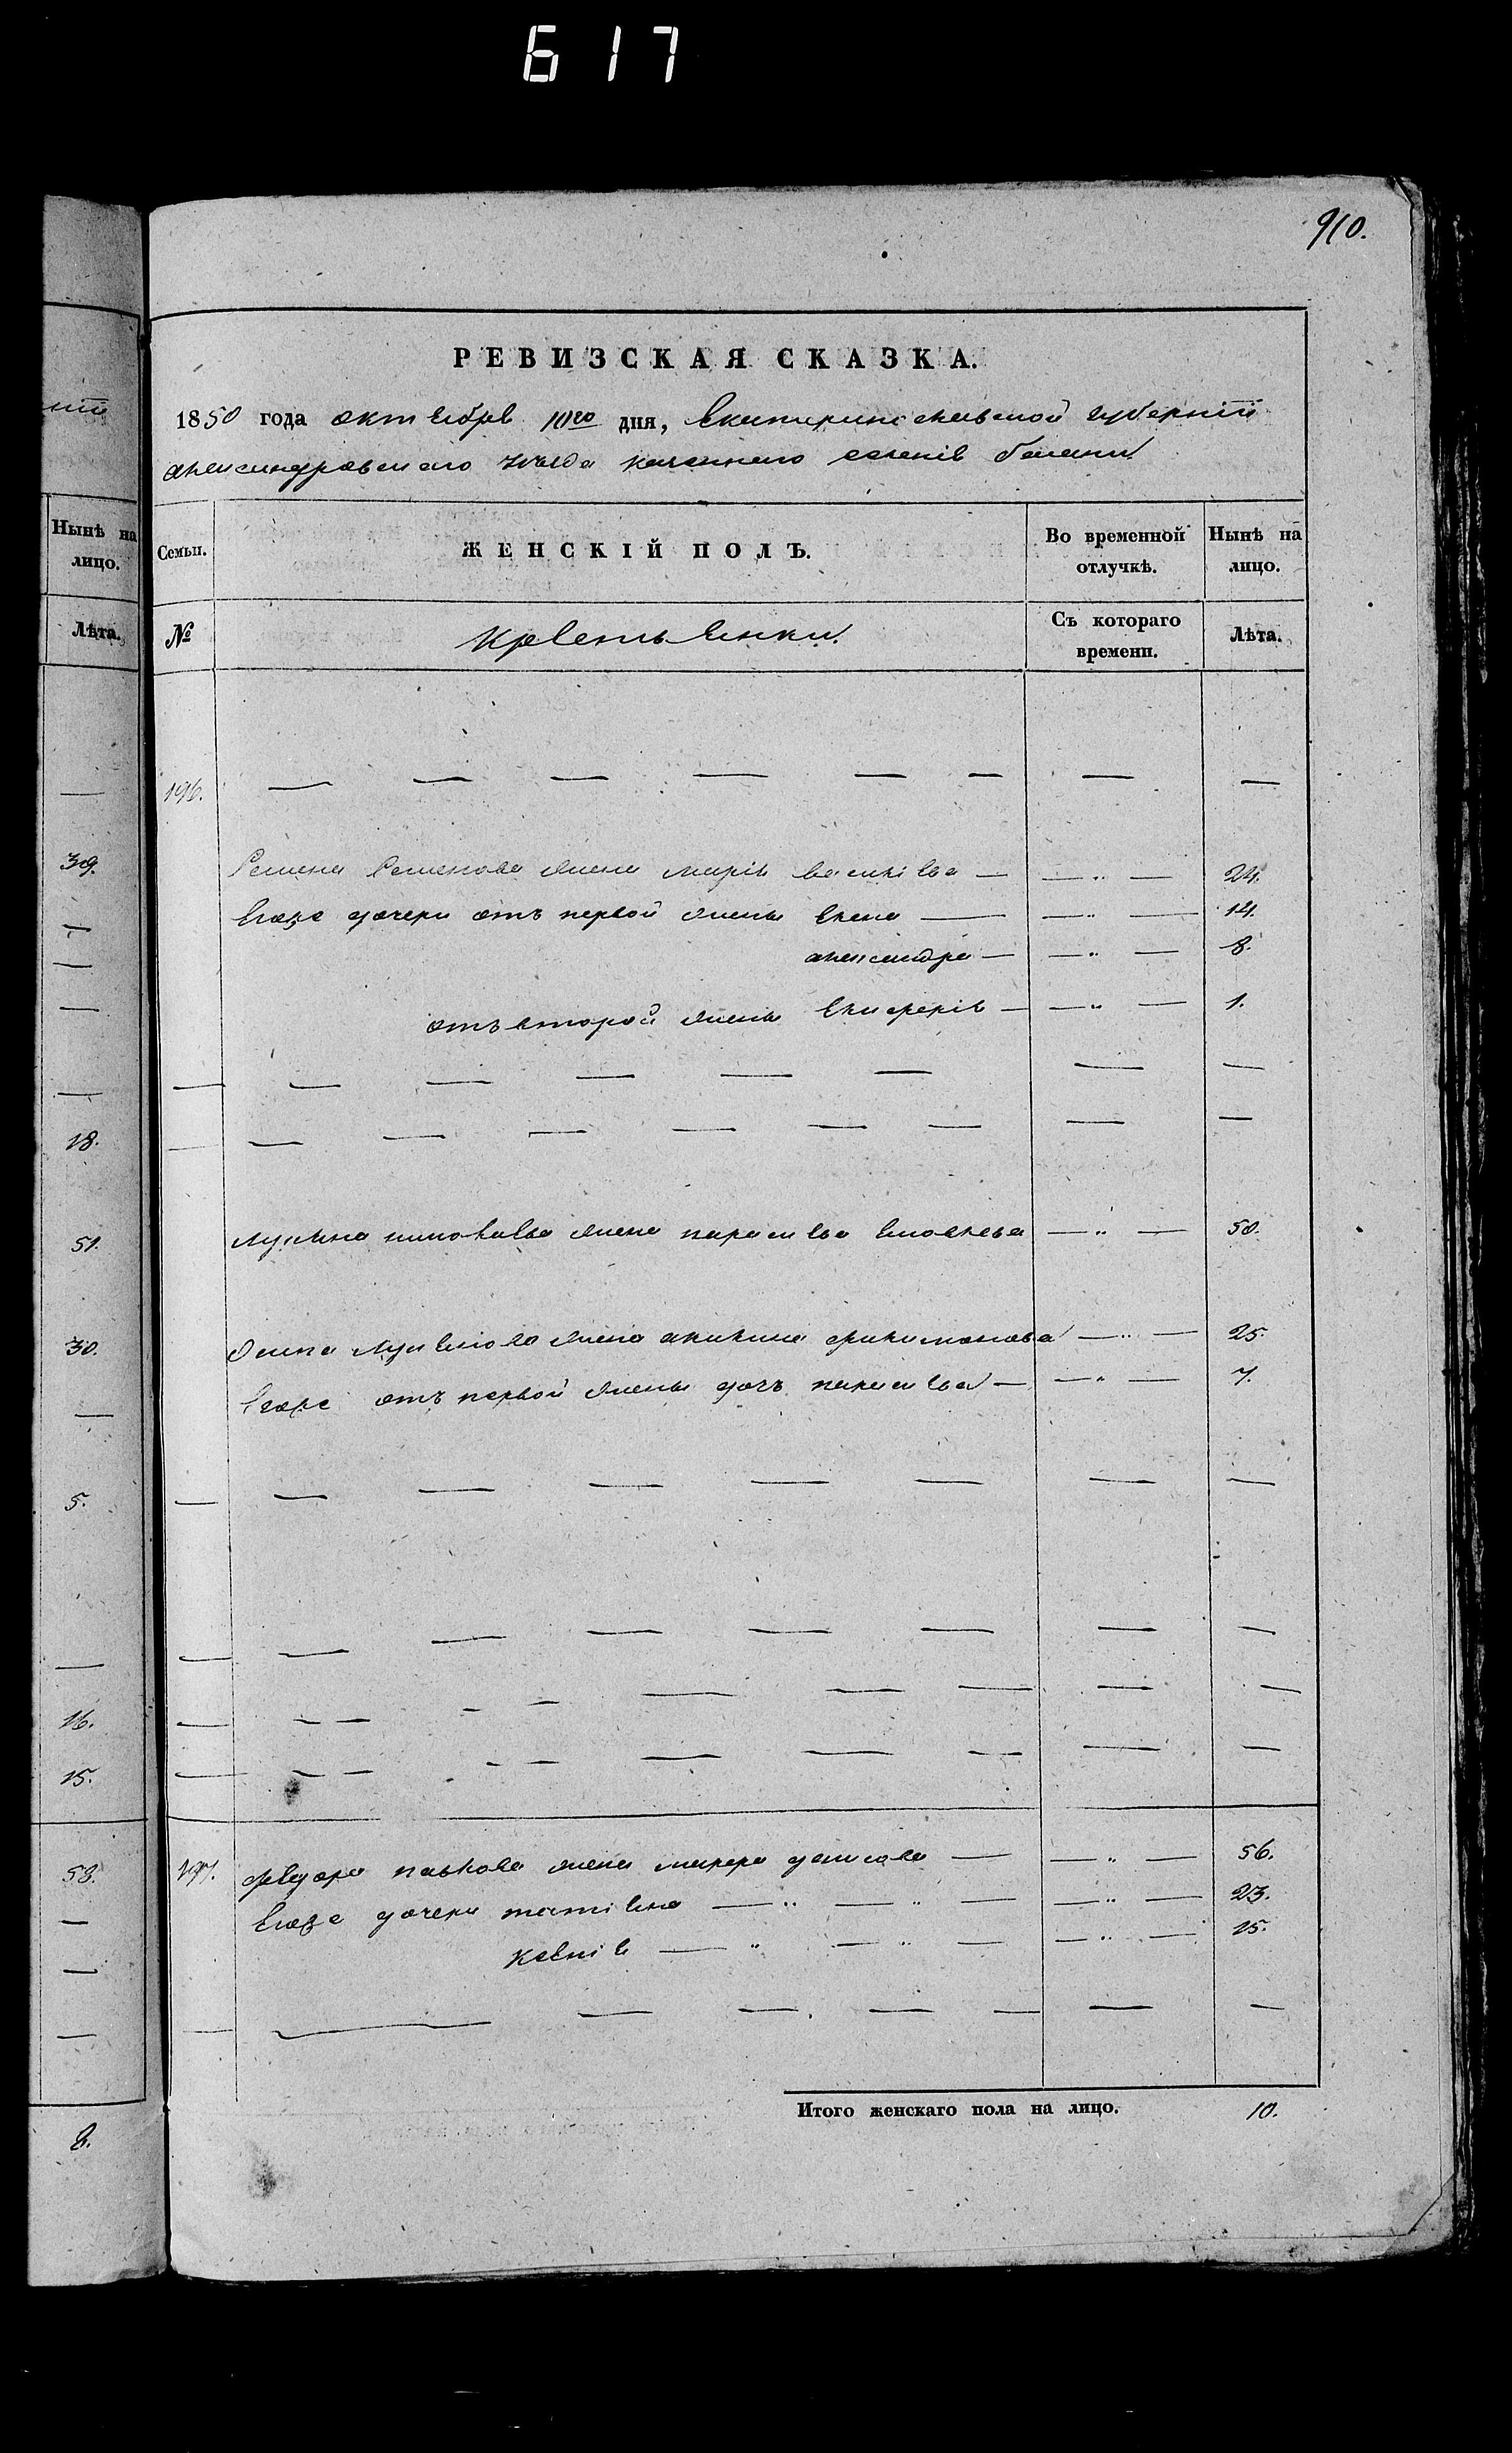 617
910.
РЕВИЗСКАЯ СКАЗКА.
1850 года октября 10го дня, Екатеринославской губернiи
александровскаго уѣзда казеннаго селенiя
Нынѣ на лицо.
Лѣта.
Семьи. ЖЕНСКІЙ ПОЛЪ. Во временной отлучкѣ. Нынѣ на лицо.
№ Крестьянки. Съ котораго времени. Лѣта.
196. — — — — — — — —
39. Семена Семенова жена марiя василiева — — „ — 24.
— Егоже дочери отъ первой жены Елена — — „ — 14.
— александра — — „ — 8.
— отъ второй жены — — „ — 1.
— — — — — — — — —
18. — — — — — — — — —
51. жена параскева — „ — 50.
30. жена акилина — „ — 25.
— Егоже отъ первой жены дочь параскева — — „ — 7.
5. — — — — — — — —
— — — — — — — — —
16. — — — — — — — — —
15. — — — — — — — — —
58. 197. федора жена денисова — — „ — 56.
— Егоже дочери татiяна — „ — „ — — „ — 23.
— ксенiя — „ — „ — — „ — 15.
— — — — — — — — —
8.
Итого женскаго пола на лицо. 10.